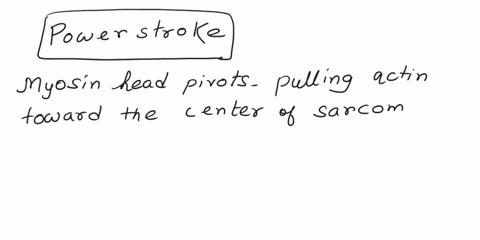 Power stroke
Myosin head pivots- pulling actin
toward the center of sarcom